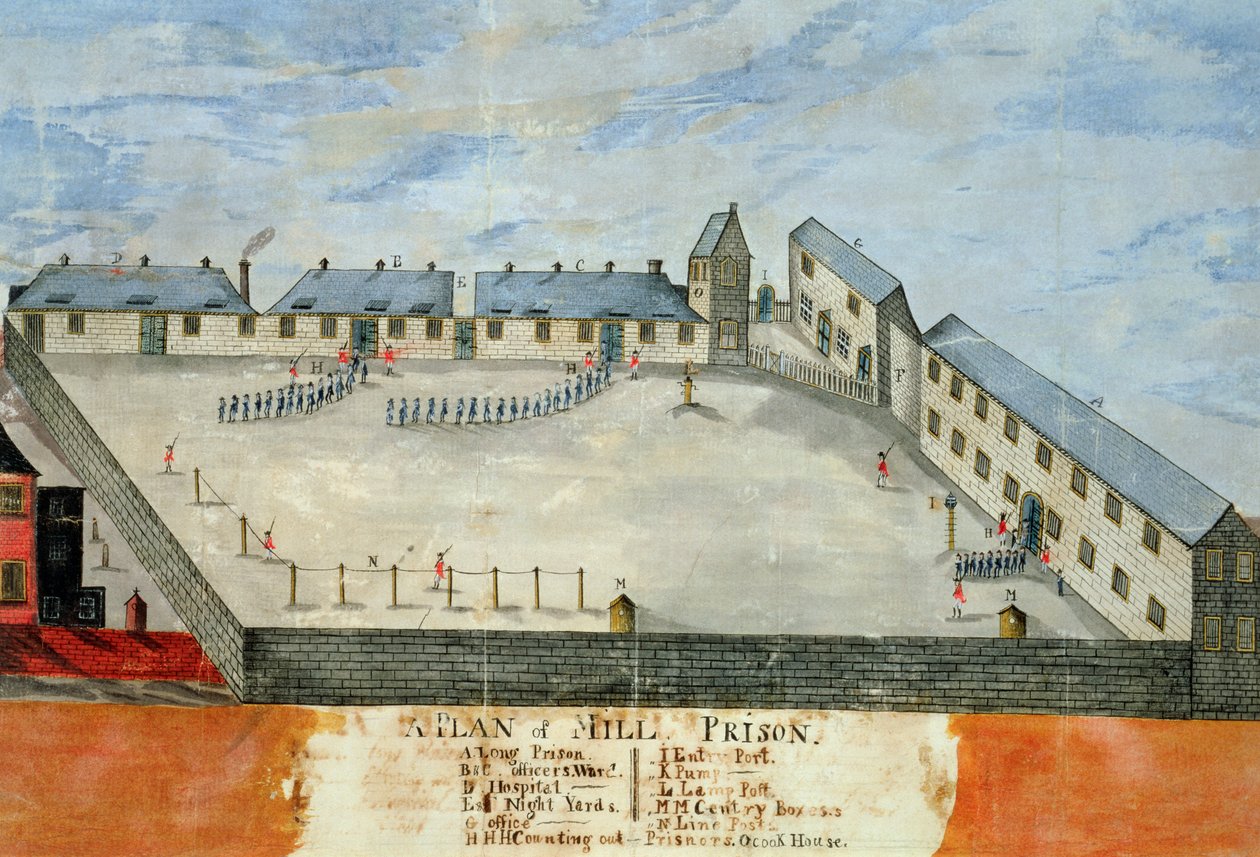 D
B
E
C
O
I
G
F
A
H
H
K
L
H
N
M
M
A PLAN of MILL. PRISON.
A. Long Prison.
B&C. officers. Ward.
D Hospital
E&F Night Yards.
G office
HHH Counting out – Prisnors. O cook House.
„ I Entry Port.
„ K Pump
„ L. Lamp Post.
„ MM Centry Boxes.s
„ N Line Posts.